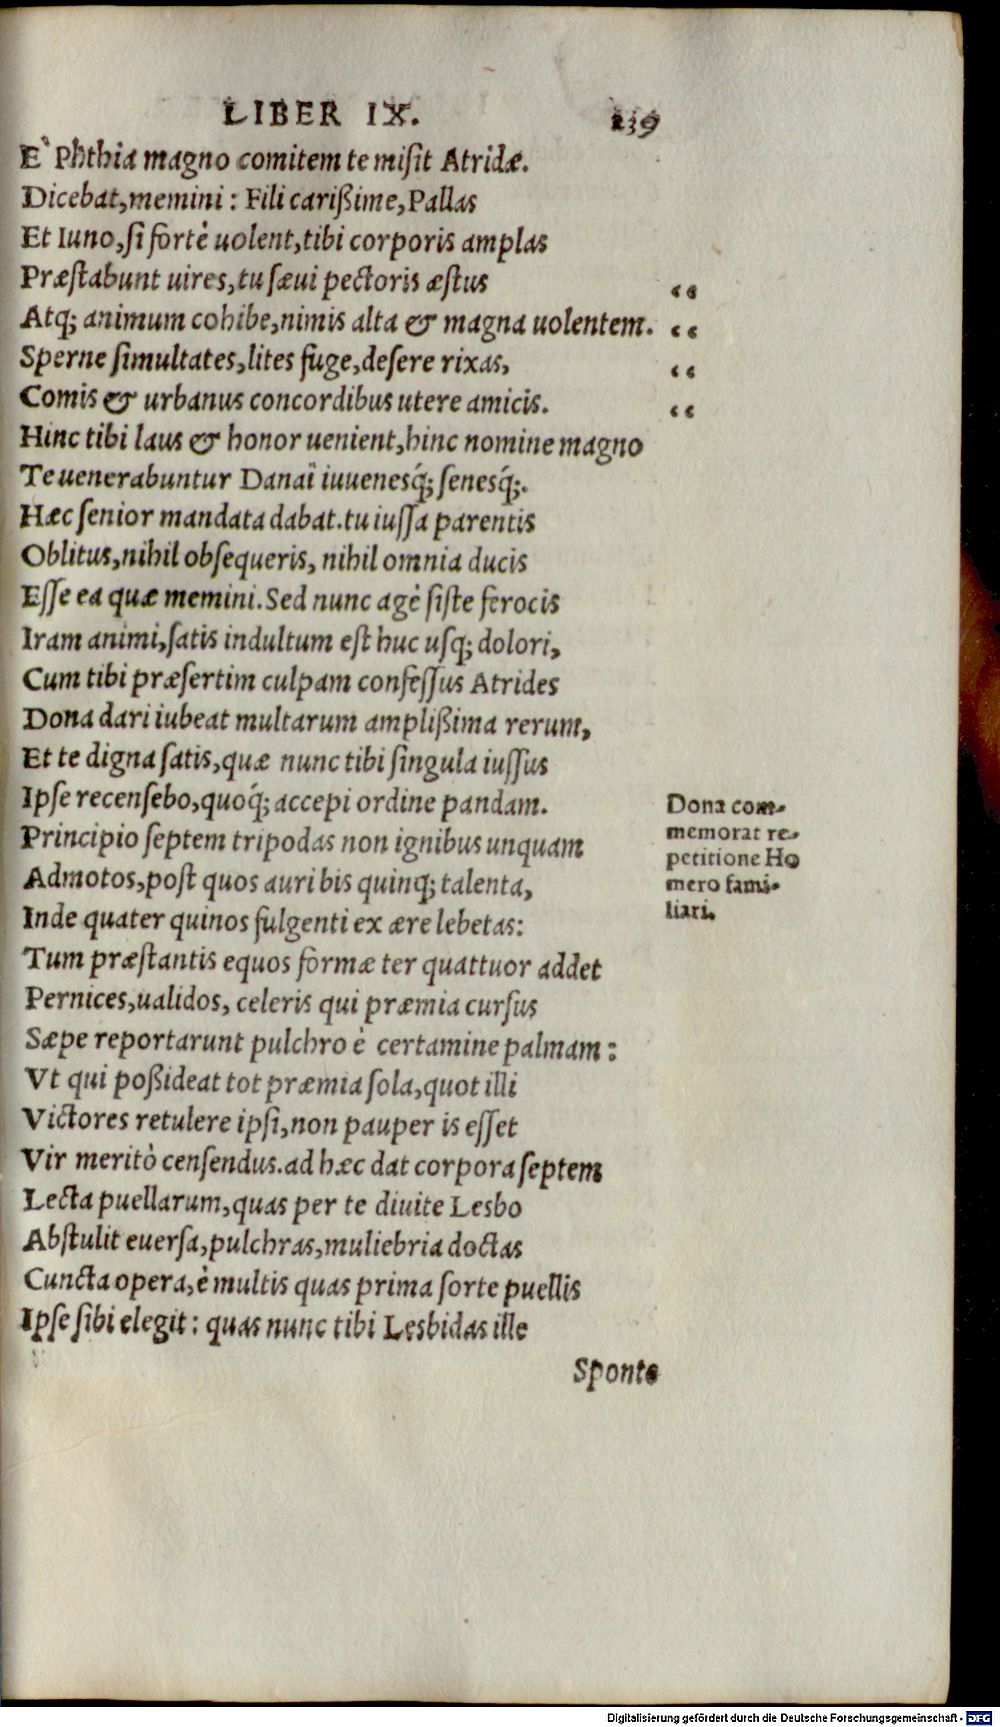 LIBER IX. 239
E` Phthia magno comitem te misit Atridæ.
Dicebat,memini : Fili carißime,Pallas
Et Iuno,si fortè uolent,tibi corporis amplas
Præstabunt uires,tu sæui pectoris æstus “
Atq; animum cohibe,nimis alta & magna uolentem. “
Sperne simultates,lites fuge,desere rixas, “
Comis & urbanus concordibus utere amicis. “
Hinc tibi laus & honor uenient,hinc nomine magno
Te uenerabuntur Danaï iuuenesq́; senesq́;.
Hæc senior mandata dabat.tu iussa parentis
Oblitus,nihil obsequeris, nihil omnia ducis
Esse ea quæ memini.Sed nunc agè siste ferocis
Iram animi,satis indultum est huc usq; dolori,
Cum tibi præsertim culpam confessus Atrides
Dona dari iubeat multarum amplißima rerum,
Et te digna satis,quæ nunc tibi singula iussus
Ipse recensebo,quoq́; accepi ordine pandam.
Principio septem tripodas non ignibus unquam
Admotos,post quos auri bis quinq; talenta,
Inde quater quinos fulgenti ex ære lebetas:
Tum præstantis equos formæ ter quattuor addet
Pernices,ualidos, celeris qui præmia cursus
Sæpe reportarunt pulchro è certamine palmam :
Vt qui poßideat tot præmia sola,quot illi
Victores retulere ipsi,non pauper is esset
Vir meritò censendus.ad hæc dat corpora septem
Lecta puellarum,quas per te diuite Lesbo
Abstulit euersa,pulchras,muliebria doctas
Cuncta opera,è multis quas prima sorte puellis
Ipse sibi elegit : quas nunc tibi Lesbidas ille
Sponte
Dona com-
memorat re-
petitione Ho
mero fami-
liari.
Digitalisierung gefördert durch die Deutsche Forschungsgemeinschaft - DFG